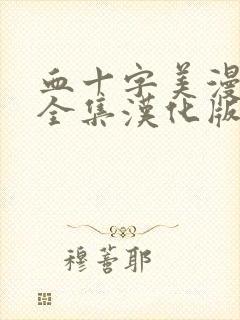 血十字美漫
全集漢化版
穆蕾耶